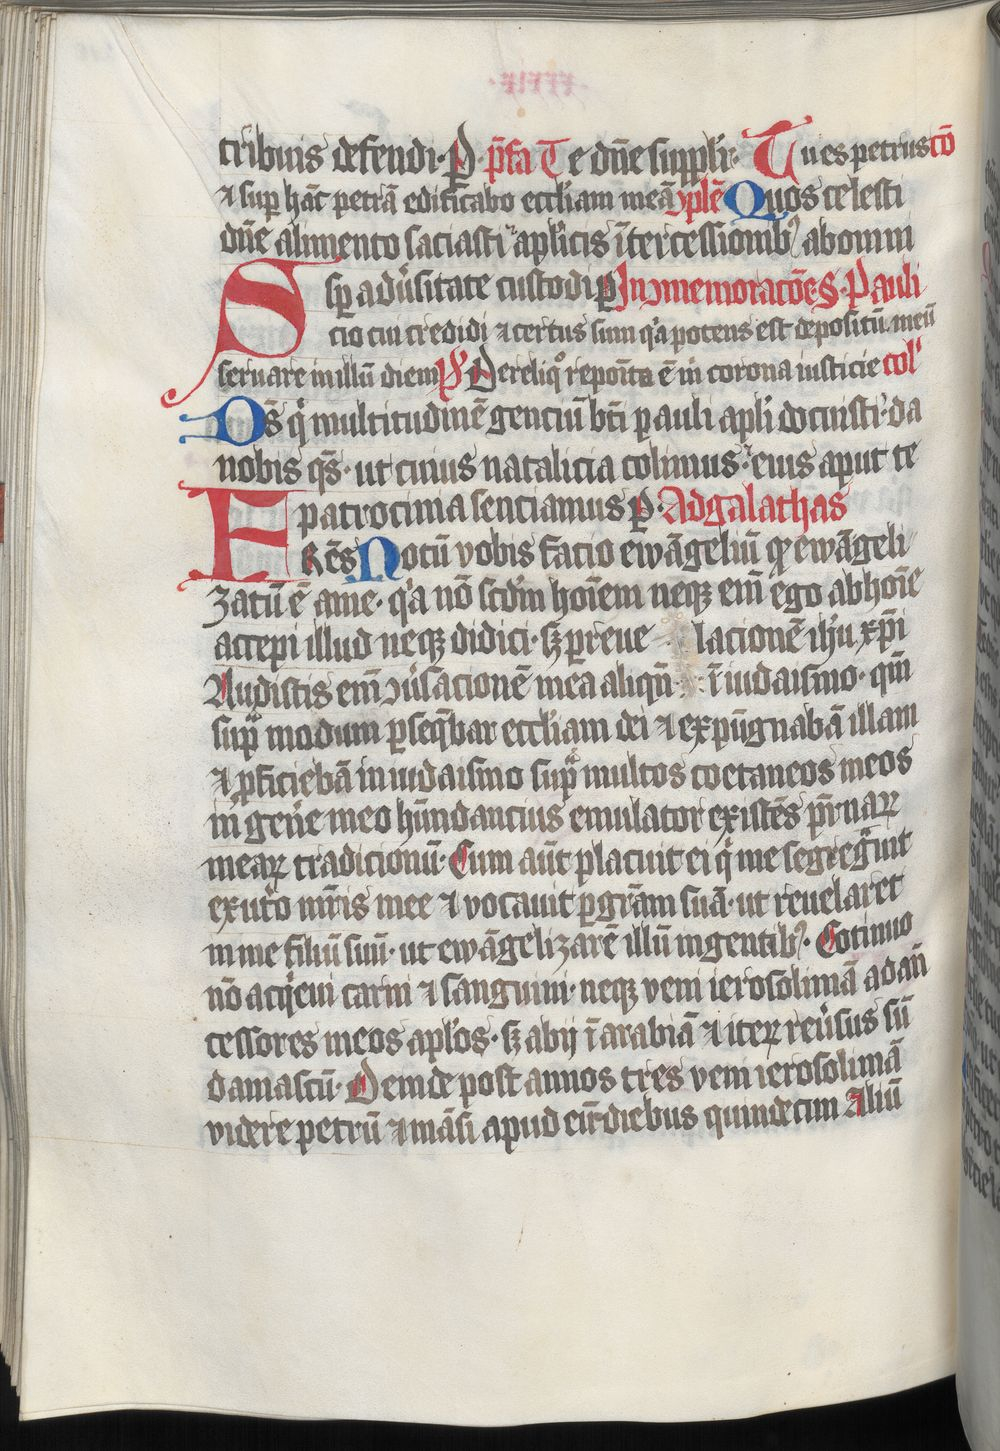 tribuis defendi·P̄· p̄fa Te dn̄e supplr̄· Tu es petrus cō
⁊ sup̄ hāc petrā edificabo eccl'iam meā ꝯplē Quos celesti
dn̄e alimento saciasti apl'icis ītercessionibꝫ ab omni
sꝑ adu'sitate custodi ꝑ In ꝯmemoracōe S· Pauli
Scio cui credidi ⁊ certus sum qa potens est depositū meū
seruare in illū diem Dereliqͦ reposita ē m̄ corona iusticie col'
Ds̄ qͥ multitudinē genciū bt̄i pauli apl'i docuisti· da
nobis qs̄· ut cuius natalicia colimus· eius aput te
patrocinia senciamus ꝑ· Ad galathas
FRēs Notū vobis facio ewāgeliū qꝫ ewāgeli
zatū ē a me· qa nō scdm̄ hoīem neqꝫ em̄ ego ab hoīe
accepi illud neqꝫ didici· sꝫ ꝑ reue lacionē ih'u xp̄i
Audistis em̄ ꝯu'sacionē mea aliqn̄ ī iudaismo· qm̄
supͣ modum ꝑseq̄bar eccl'iam dei ⁊ expūgnabā illam
⁊ ꝓficiebā in iudaismo supͣ multos coetaneos meos
in gen'e meo hūndancius emulator existēs pr̄naꝝ
meaꝝ tradicionū· Cum aūt placuit ei qͥ me segregauit
ex ut'o mr̄is mee ⁊ vocauit ꝑ gr̄am suā· ut reuelaret
in me filiū suū· ut ewāgelizarē illū in gentibꝫ· Cōtinuo
nō acqͥeui carni ⁊ sanguini· neqꝫ veni ierosolimā ad an̄
cessores meos apl'os· sꝫ abij ī arabiā ⁊ iteꝝ reu'sus sū
damascū· Deinde post annos tres veni ierosolimā
videre petrū ⁊ māsi apud eū diebus quindecim Aliū